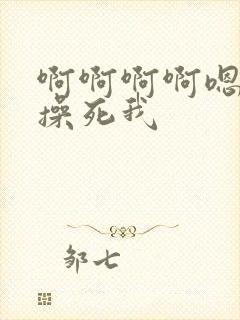 啊啊啊啊嗯
操死我
邹七